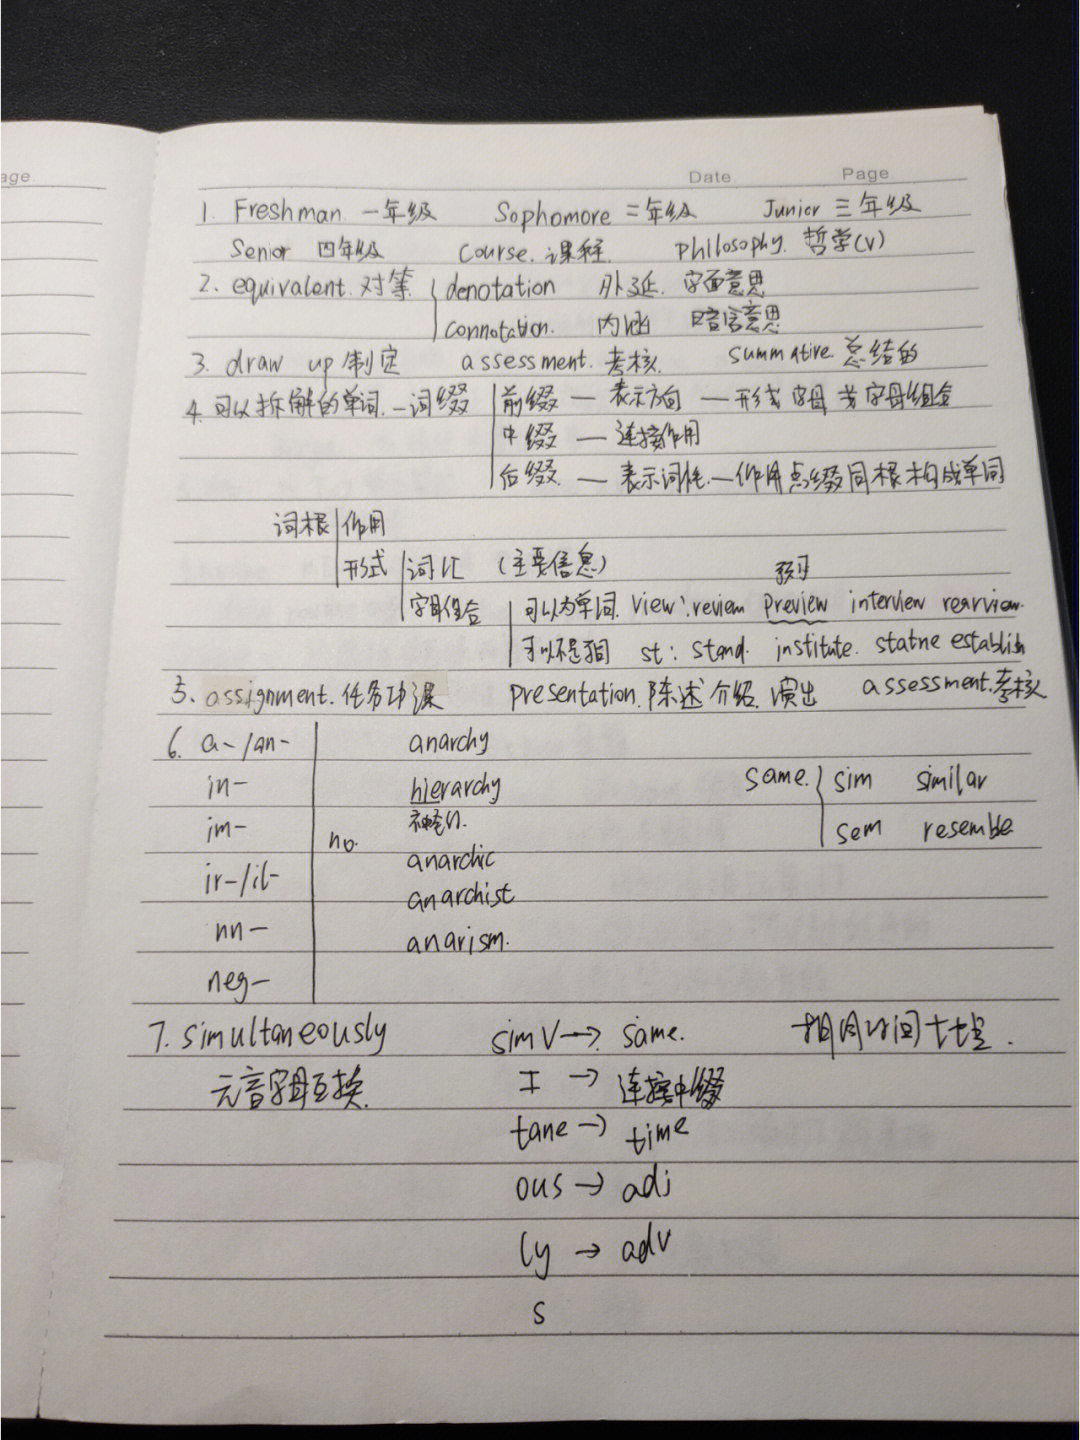 age
Date. Page
1. Freshman. 一年级 Sophomore 二年级 Junior 三年级
Senior 四年级 Course. 课程. philosophy. 哲学(V)
2. equivalent. 对等. denotation 外延. 字面意思
connotation. 内涵 暗含意思
3. draw up 制定 assessment. 考核. summative 总结的
4. 可以拆解的单词. 一词缀 前缀 — 表示方向 — 形式 字母 或字母组合
中缀 — 连接作用
后缀. — 表示词性. — 作用 点缀词根构成单词
词根 作用
形式 词汇 (主要信息) 预习
字母组合 可以为单词. view: review preview interview rearview.
可以不是词 st: stand. institute. statue establish
5. assignment. 任务功课 presentation. 陈述 介绍. 演出 assessment. 考核
6. a-/an- anarchy
in- hierarchy same. sim similar
im- no. sem resemble
ir-/il- anarchic
anarchist
nn- anarism.
neg-
7. simultaneously simV→ same. 相同时间
元音字母互换. I → 连接中缀
tane→ time
ous→ adj
ly → adv
s